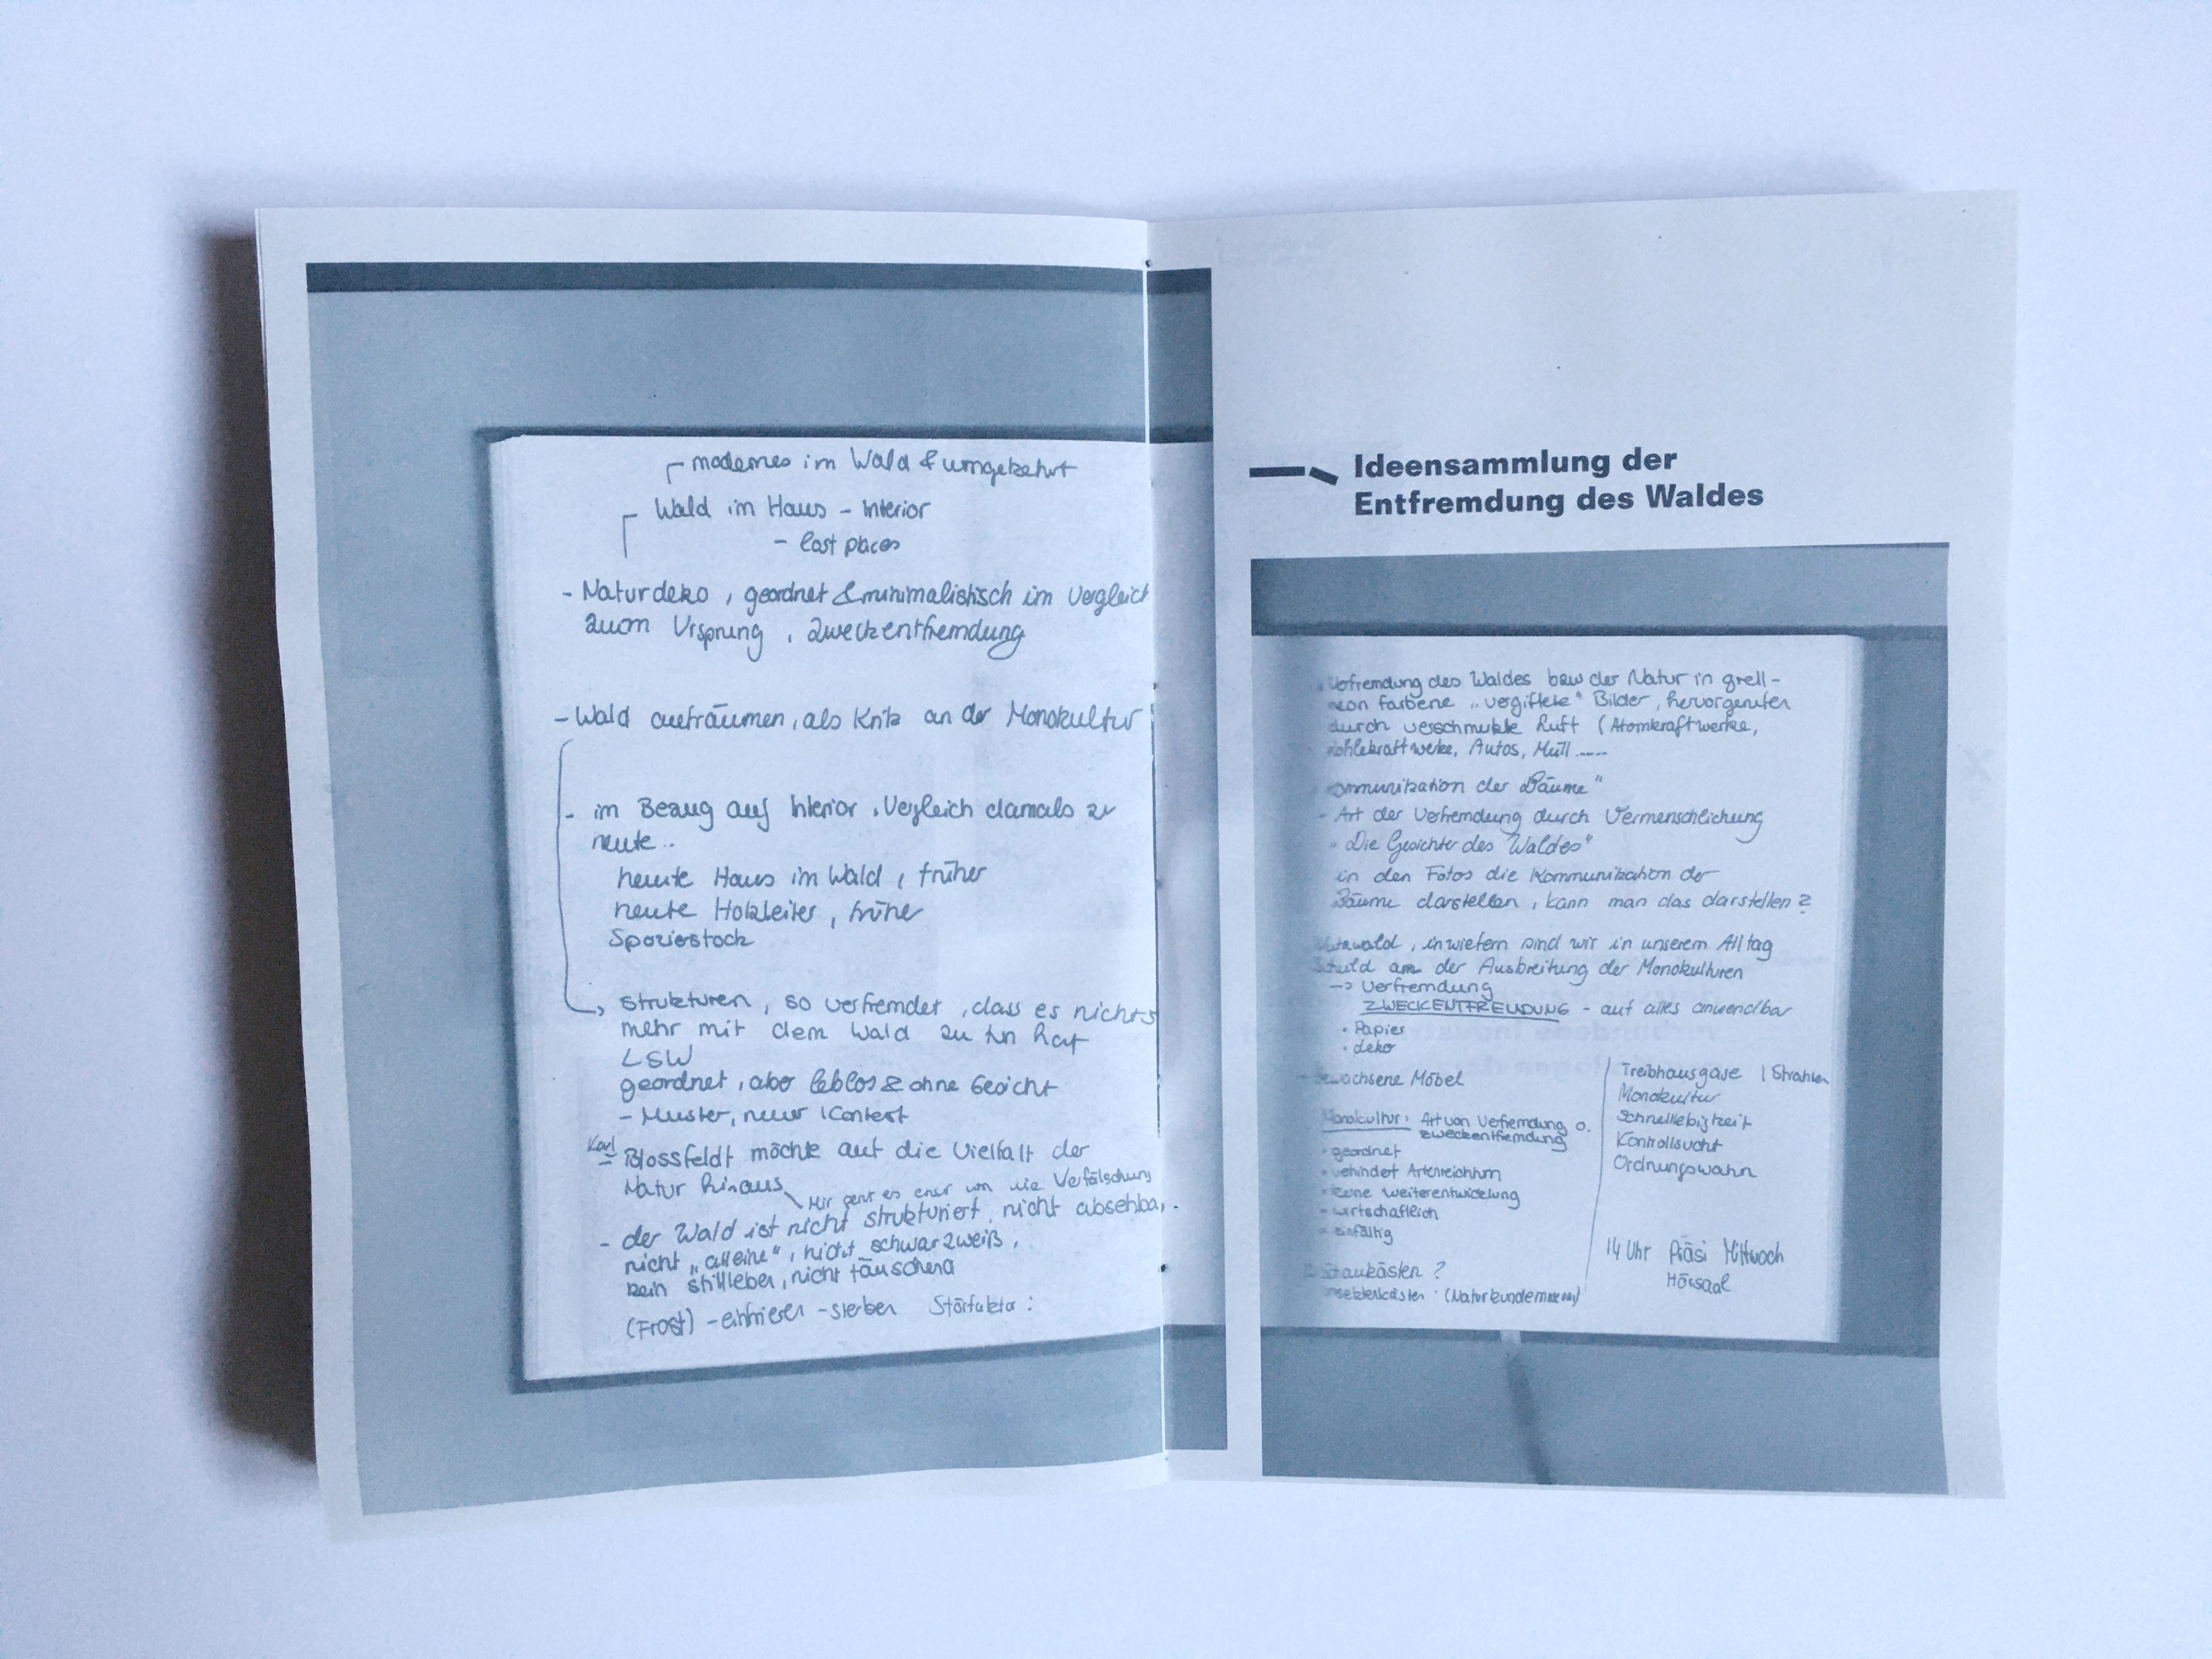 modernes im Wald & umgekehrt
Wald im Haus - Interior
- lost places
- Naturdeko, geordnet & minimalistisch im Vergleich
zum Ursprung, Zweckentfremdung
- Wald aufräumen, als Kritik an der Monokultur
- im Bezug auf Interior, Vergleich damals zu
heute..
heute Haus im Wald, früher
heute Holzleiter, früher
Spazierstock
Strukturen, so verfremdet, dass es nichts
mehr mit dem Wald zu tun hat
LSW
geordnet, aber leblos & ohne Gesicht
- Muster, neuer Kontext
Karl
Blossfeldt möchte auf die Vielfalt der
Natur hinaus
Mir geht es eher um die Verfälschung
- der Wald ist nicht strukturiert, nicht absehbar,
nicht „alleine", nicht schwarzweiß,
kein Stillleben, nicht täuschend
(Frost) - einfrieren - sterben Störfaktor:
Ideensammlung der
Entfremdung des Waldes
Verfremdung des Waldes bzw der Natur in grell-
neon farbene „vergiftete" Bilder, hervorgerufen
durch verschmutzte Luft (Atomkraftwerke,
Kohlekraftwerke, Autos, Müll.....
Kommunikation der Bäume"
- Art der Verfremdung durch Vermenschlichung
„Die Gesichter des Waldes"
in den Fotos die Kommunikation der
Bäume darstellen, kann man das darstellen?
, inwiefern sind wir in unserem Alltag
Schuld an der Ausbreitung der Monokulturen
-> Verfremdung
ZWECKENTFREMDUNG - auf alles anwendbar
• Papier
• deko
- gewachsene Möbel
Monokultur: Art von Verfremdung o.
Zweckentfremdung
• geordnet
• verhindert Artenreichtum
• keine Weiterentwicklung
• wirtschaftlich
• einfältig
Treibhausgase | Strahlen
Monokultur
Schnelllebigkeit
Kontrollsucht
Ordnungswahn
14 Uhr Präsi Mittwoch
Hörsaal
Schaukästen?
(Naturkundemuseum)